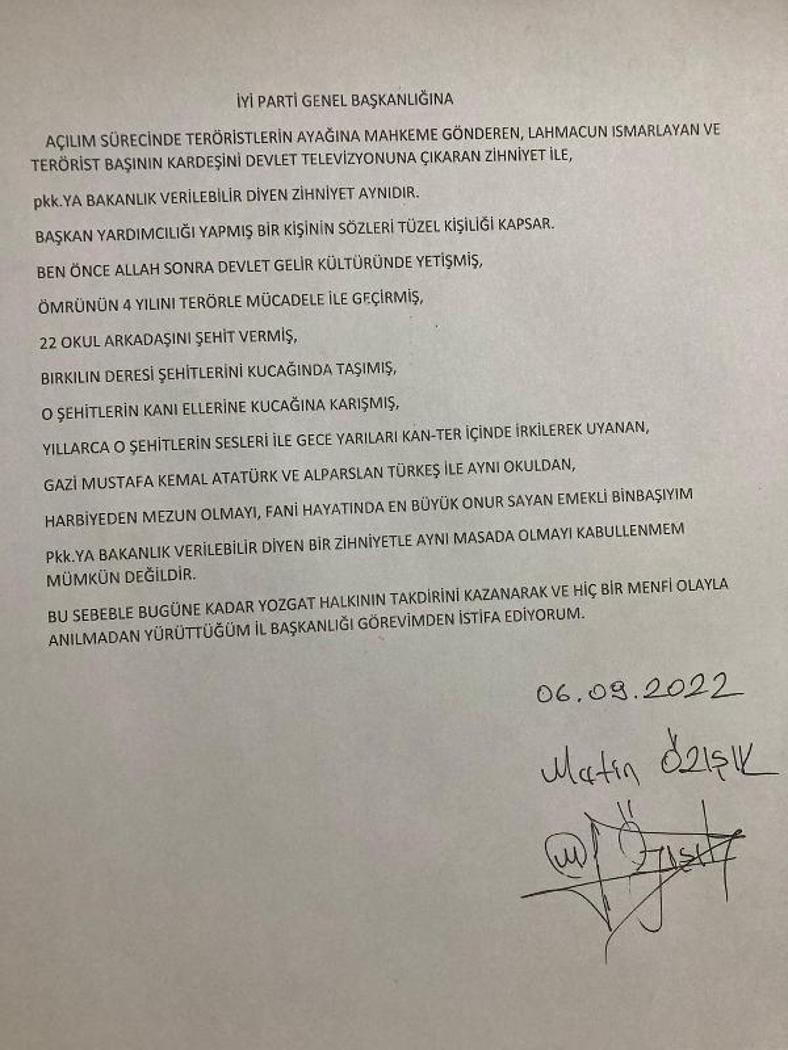 İYİ PARTİ GENEL BAŞKANLIĞINA
AÇILIM SÜRECİNDE TERÖRİSTLERİN AYAĞINA MAHKEME GÖNDEREN, LAHMACUN ISMARLAYAN VE
TERÖRİST BAŞININ KARDEŞİNİ DEVLET TELEVİZYONUNA ÇIKARAN ZİHNİYET İLE,
pkk.YA BAKANLIK VERİLEBİLİR DİYEN ZİHNİYET AYNIDIR.
BAŞKAN YARDIMCILIĞI YAPMIŞ BİR KİŞİNİN SÖZLERİ TÜZEL KİŞİLİĞİ KAPSAR.
BEN ÖNCE ALLAH SONRA DEVLET GELİR KÜLTÜRÜNDE YETİŞMİŞ,
ÖMRÜNÜN 4 YILINI TERÖRLE MÜCADELE İLE GEÇİRMİŞ,
22 OKUL ARKADAŞINI ŞEHİT VERMİŞ,
BIRKILIN DERESİ ŞEHİTLERİNİ KUCAĞINDA TAŞIMIŞ,
O ŞEHİTLERİN KANI ELLERİNE KUCAĞINA KARIŞMIŞ,
YILLARCA O ŞEHİTLERİN SESLERİ İLE GECE YARILARI KAN-TER İÇİNDE İRKİLEREK UYANAN,
GAZİ MUSTAFA KEMAL ATATÜRK VE ALPARSLAN TÜRKEŞ İLE AYNI OKULDAN,
HARBİYEDEN MEZUN OLMAYI, FANİ HAYATINDA EN BÜYÜK ONUR SAYAN EMEKLİ BİNBAŞIYIM
Pkk.YA BAKANLIK VERİLEBİLİR DİYEN BİR ZİHNİYETLE AYNI MASADA OLMAYI KABULLENMEM
MÜMKÜN DEĞİLDİR.
BU SEBEBLE BUGÜNE KADAR YOZGAT HALKININ TAKDİRİNİ KAZANARAK VE HİÇ BİR MENFİ OLAYLA
ANILMADAN YÜRÜTTÜĞÜM İL BAŞKANLIĞI GÖREVİMDEN İSTİFA EDİYORUM.
06.09.2022
Metin ÖZIŞIK
M Özışık